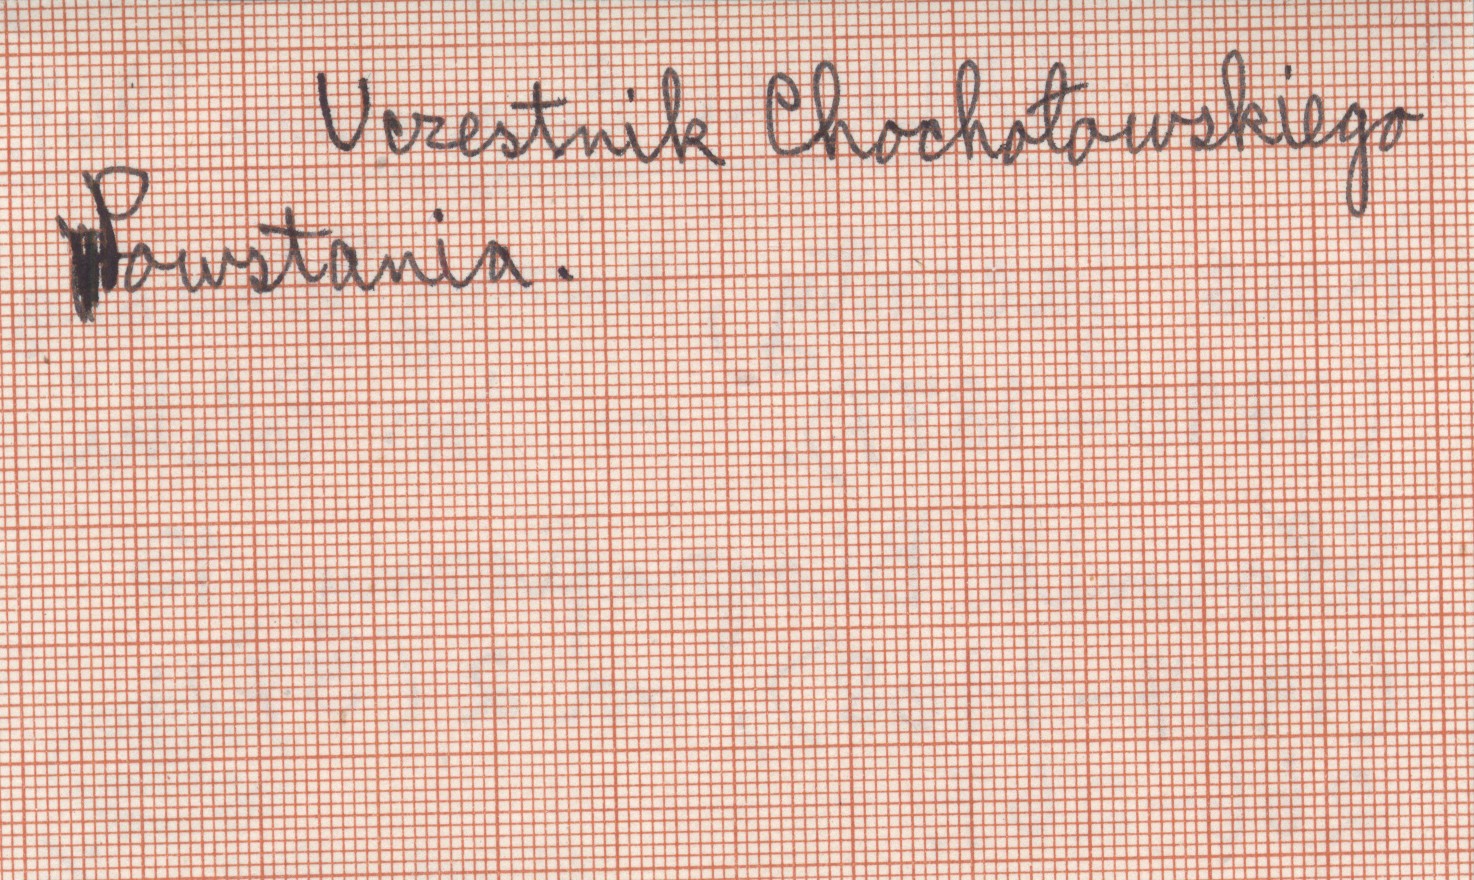 Uczestnik Chochołowskiego
Powstania.